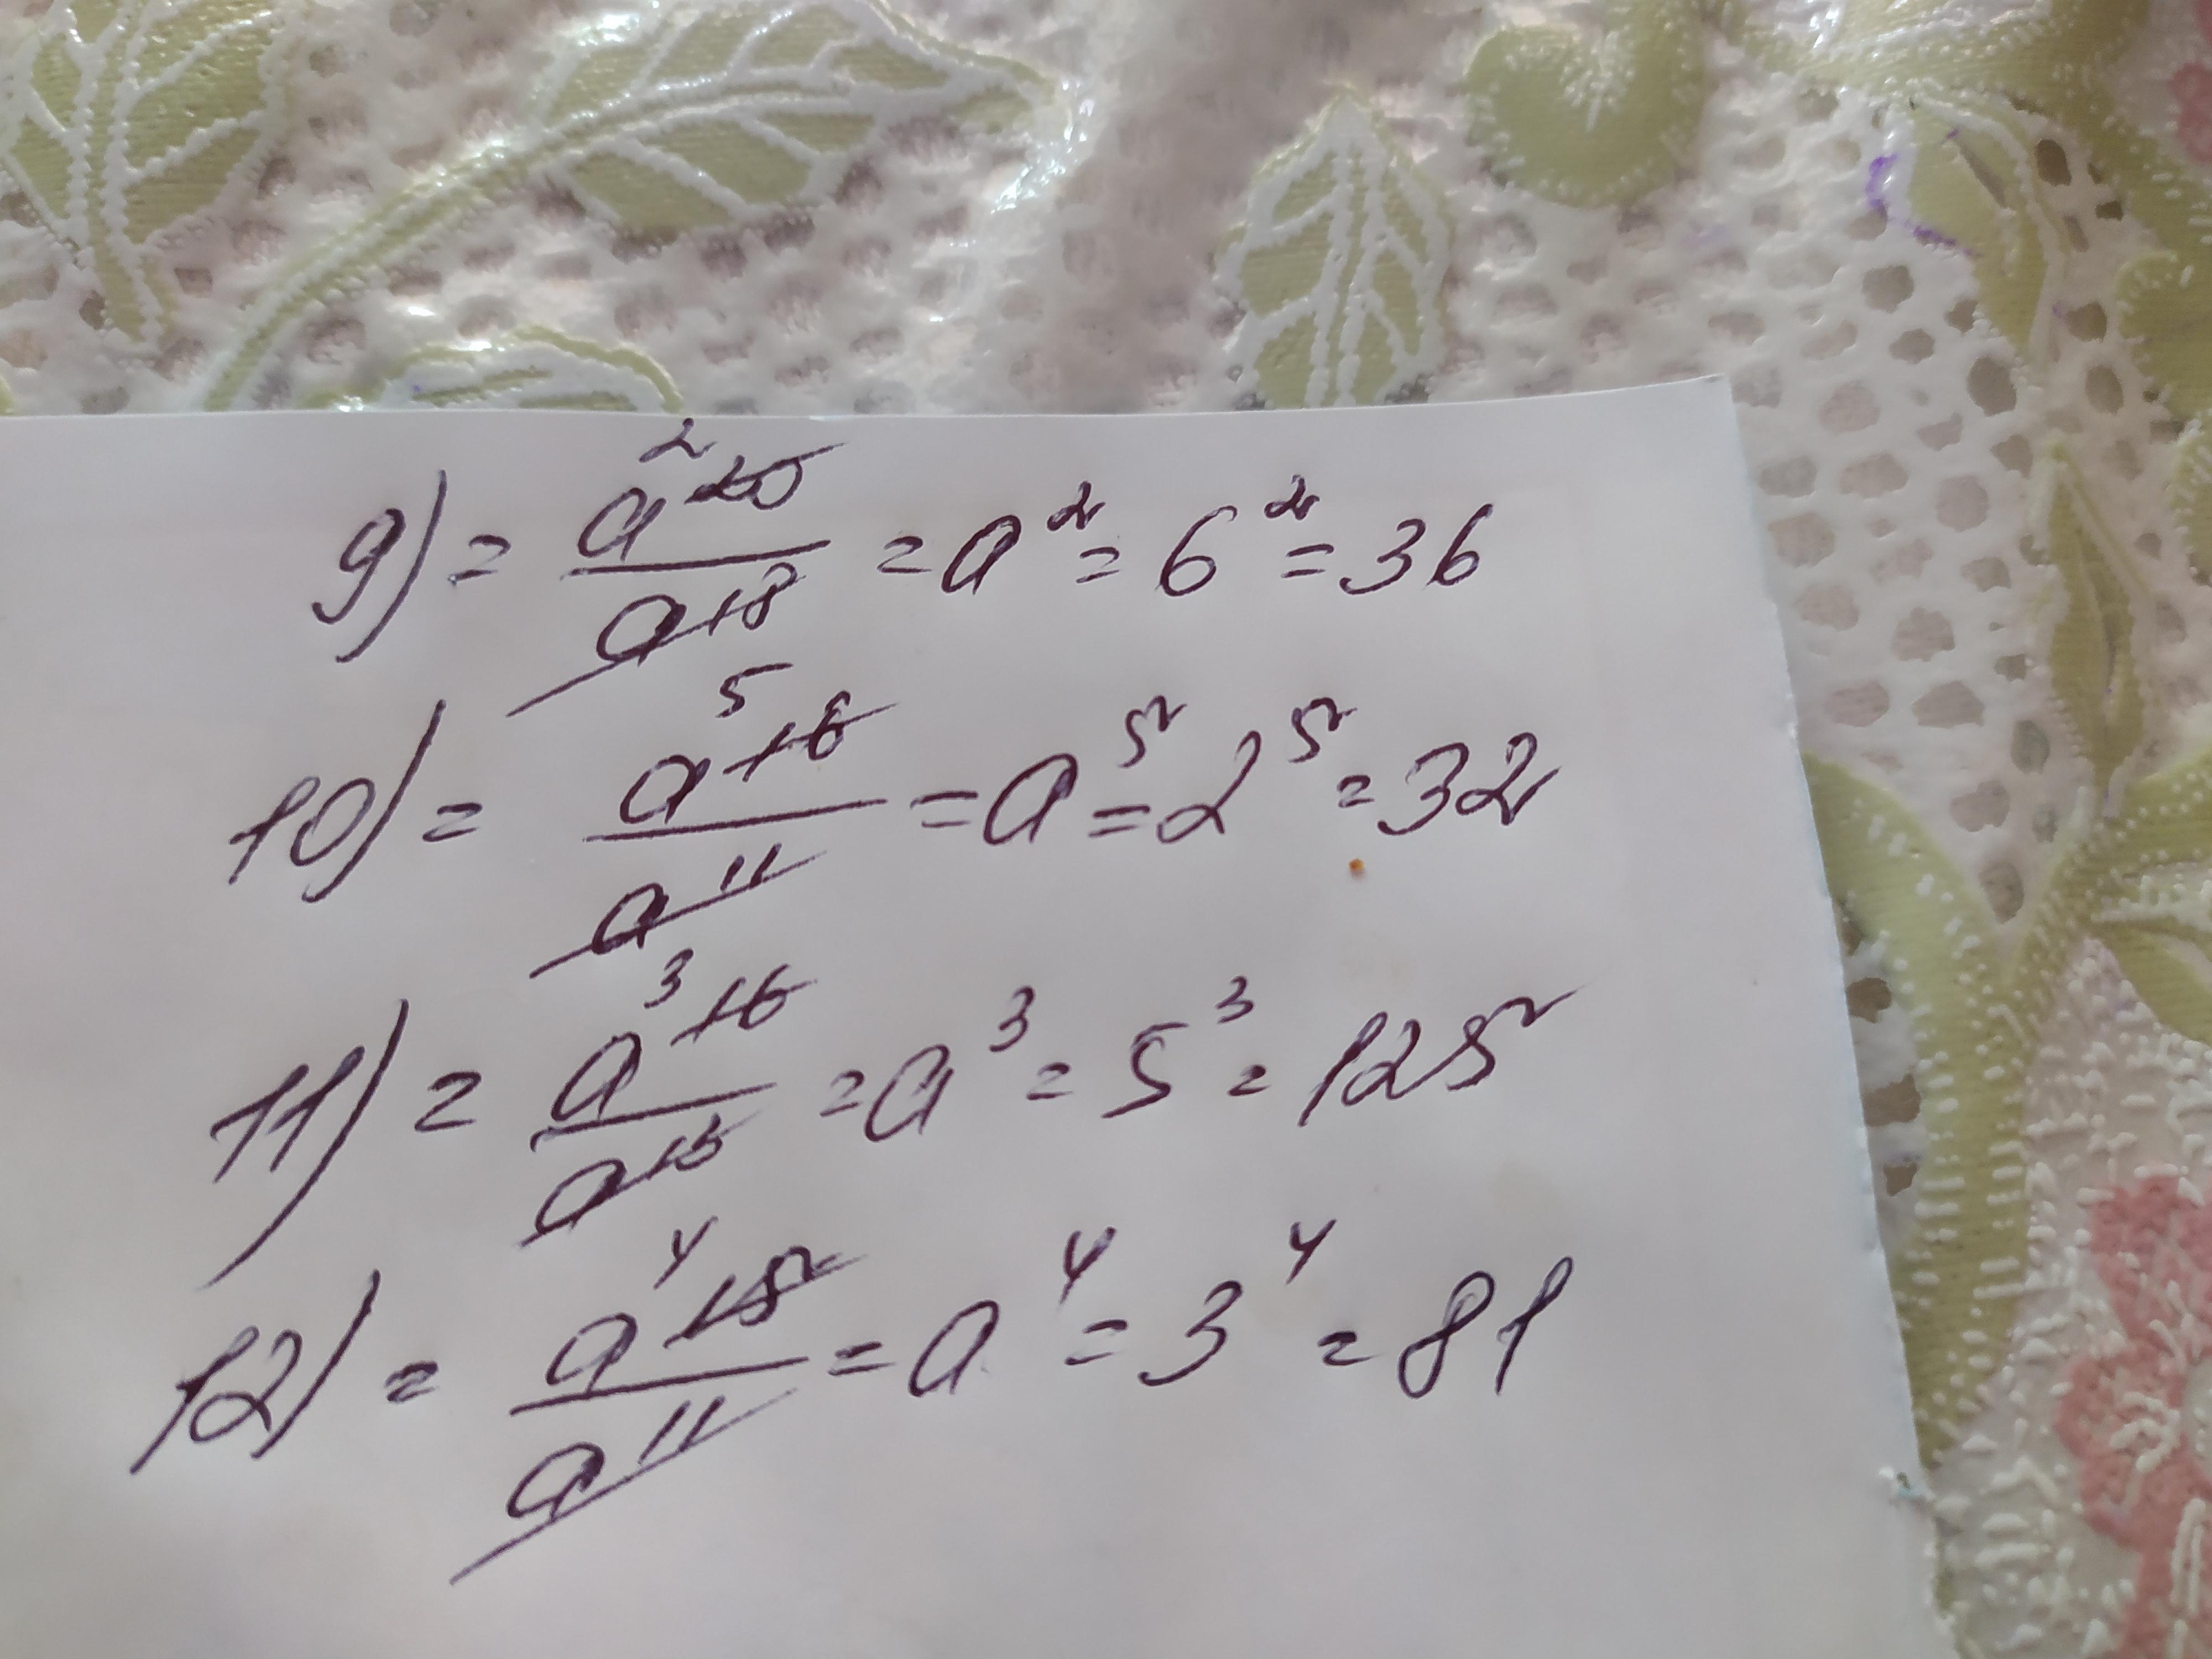 9) = a^20/a^18 = a^2 = 6^2 = 36
10) = a^16/a^11 = a^5 = 2^5 = 32
11) = a^16/a^13 = a^3 = 5^3 = 125
12) = a^15/a^11 = a^4 = 3^4 = 81